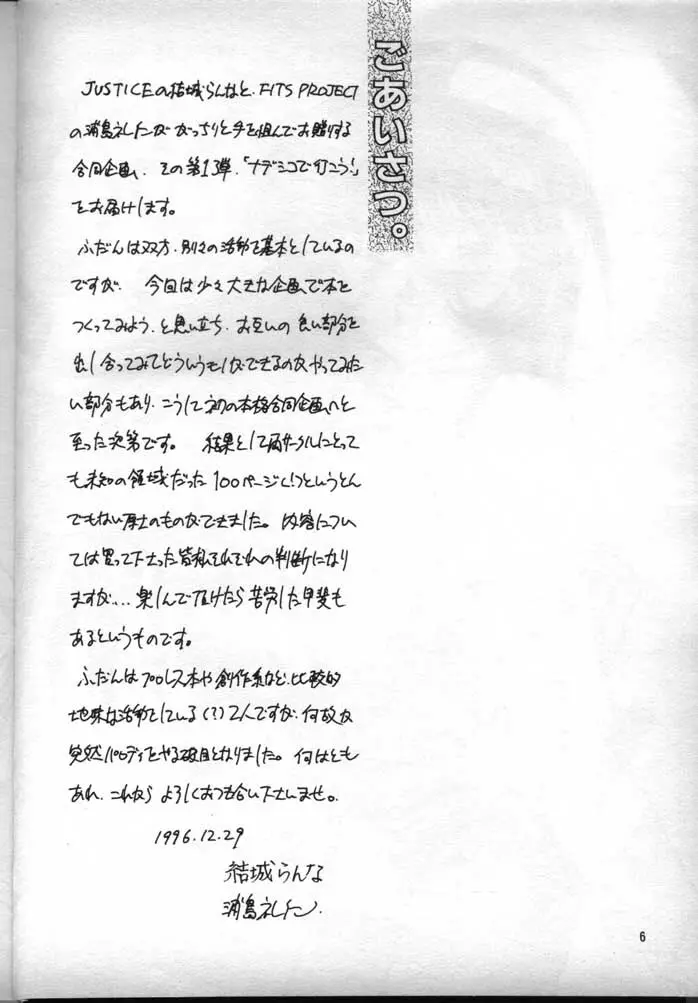 ごあいさつ。
JUSTICEの結城らんなと、FITS PROJECT
の浦島礼仁がががっちりと手を組んでお贈りする
合同企画、その第1弾、「ナデシコで行こう!」
をお届けします。
ふだんは双方、別々の活動を基本としているの
ですが、今回は少々大きな企画で本を
つくってみよう、と思い立ち、お互いの良い部分を
出し合ってみてどういうモノができるのかやってみた
い部分もあり、こうして初の本格合同企画へと
至った次第です。結果として両サークルにとって
も未知の領域だった100ページ(!)というとん
でもない厚さのものができました。内容につい
ては買って下さった皆様それぞれの判断になり
ますが…、楽しんで頂けたら苦労した甲斐も
あるというものです。
ふだんはプロレス本や創作系など、比較的
地味な活動をしている(?)2人ですが、何故か
突然パロディをやる破目となりました。何はとも
あれ、これから よろしくおつき合い下さいませ。
1996.12.29
結城らんな
浦島
6